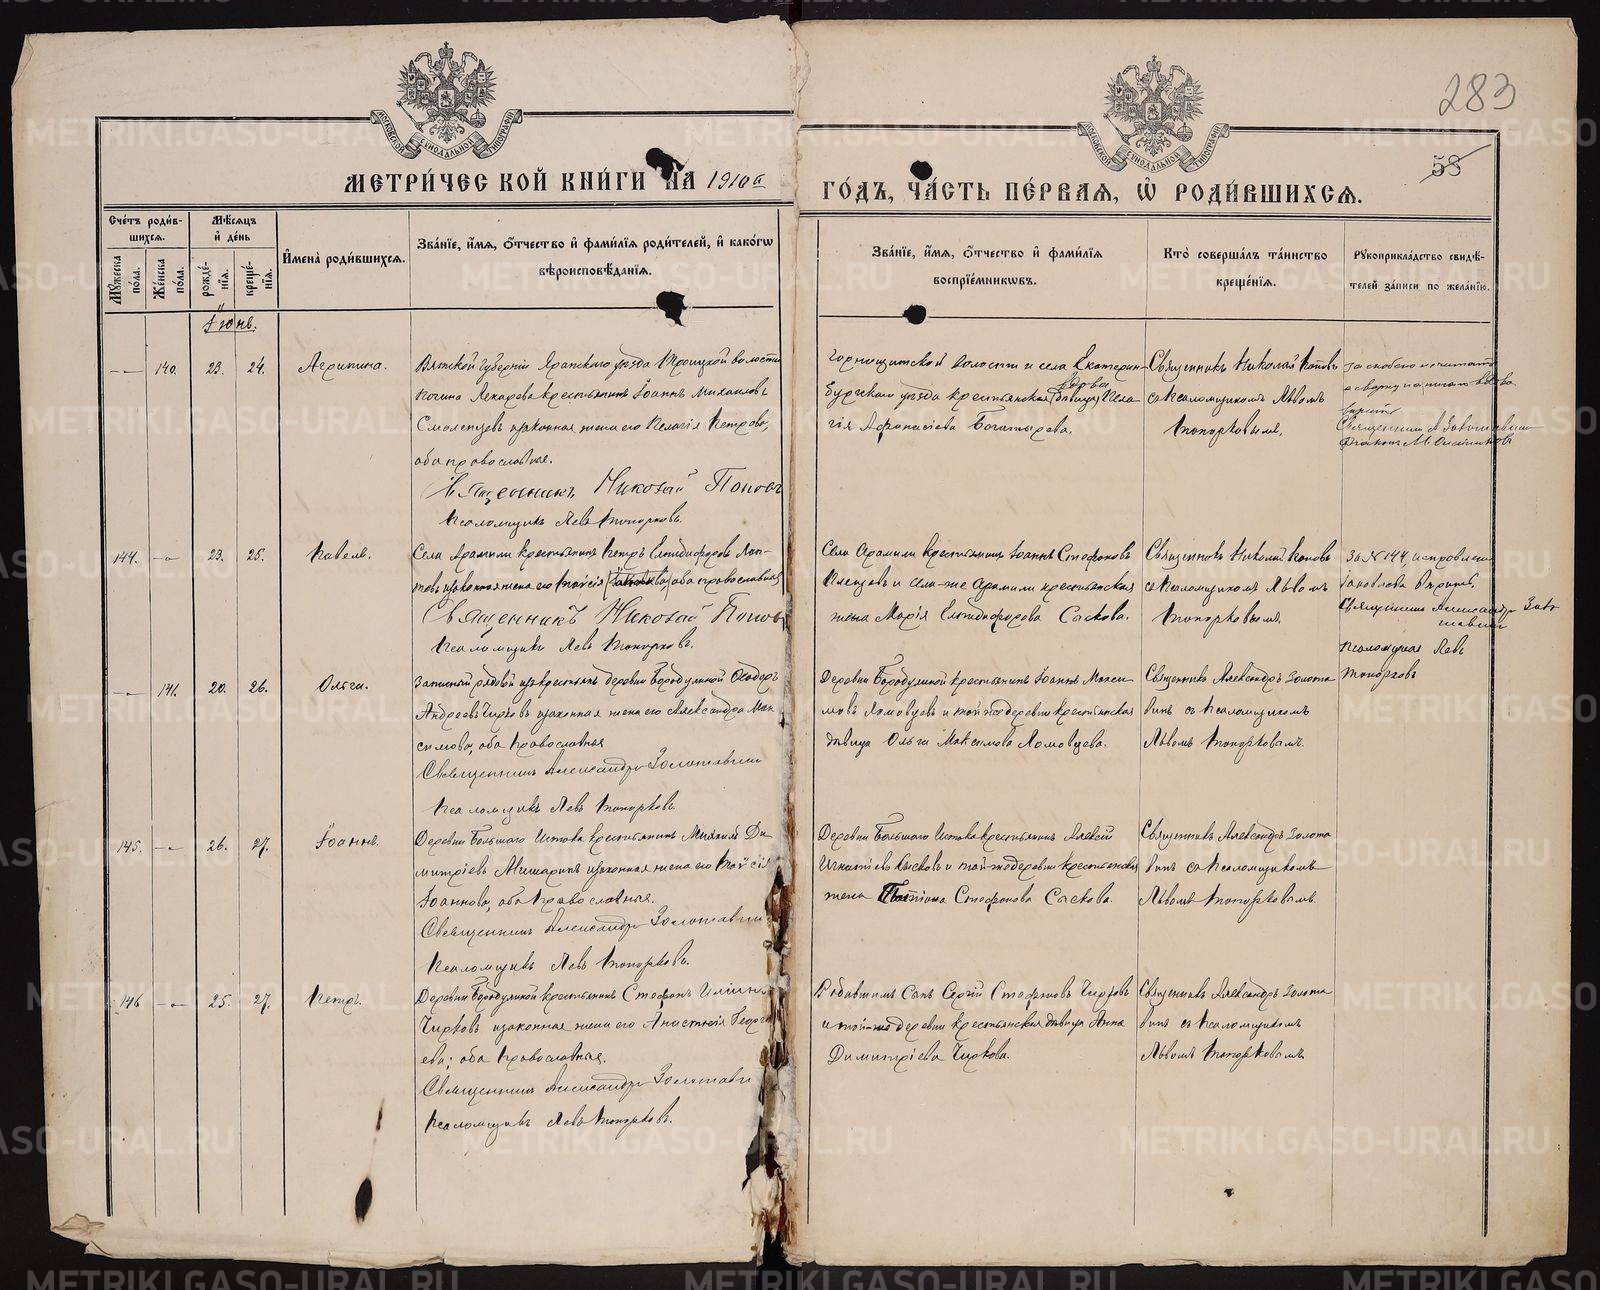 283
58
МОСКОВСКОЙ СѴНОДАЛЬНОЙ ТИПОГРАФІИ
МОСКОВСКОЙ СѴНОДАЛЬНОЙ ТИПОГРАФІИ
МЕТРИ́ЧЕСКОЙ КНИ́ГИ НА 1910й ГО́ДЪ, ЧА́СТЬ ПЕ́РВАЯ, Ѡ҆ РОДИ́ВШИХСЯ.
Сче́тъ роди́вшихся.
Мꙋ́жеска по́ла.
Же́нска по́ла.
Мѣ́сяцъ и҆ де́нь
рожде́нїя.
креще́нїя.
И҆мена̀ роди́вшихся.
Зва́нїе, и҆́мя, ѻ҆́тчество и҆ фами́лїя роди́телей, и҆ како́гѡ вѣроисповѣ́данїя.
Зва́нїе, и҆́мя, ѻ҆́тчество и҆ фами́лїя воспрїе́мникѡвъ.
Кто̀ соверша́лъ та́инство креще́нїя.
Рꙋкоприкла́дство свидѣ́телей за́писи по жела́нїю.
Іюнь.
140. 23. 24. Агрипина.
Вятской губерніи Яранскаго уѣзда Троицкой волости
крестьянинъ Іоаннъ Михаиловъ
Смоленцевъ и законная жена его Пелагія Петрова,
оба православные.
Священникъ Николай Поповъ
Псаломщикъ Левъ Топорковъ.
Горнощитской волости и села Екатерин-
бургскаго уѣзда крестьянская дѣвица Пела-
гія Афанасіева Богатырева.
Священникъ Николай Поповъ
съ Псаломщикомъ Львомъ
Топорковымъ.
144. 23. 25. Павелъ.
Села Арамили крестьянинъ Петръ Елпидифоровъ Лап-
тевъ и законная жена его Таисія оба православные
Священникъ Николай Поповъ
Псаломщикъ Левъ Топорковъ.
Села Арамили крестьянинъ Іоаннъ Стефановъ
и села-же Арамили крестьянская
жена Марія Елпидифорова Саскова.
Священникъ Николай Поповъ
съ Псаломщикомъ Львомъ
Топорковымъ.
За № 144, исправлен
Священникъ Александръ Золо
тавинъ
Псаломщикъ Левъ
Топорковъ
141. 20. 26. Ольга.
Запасный рядовой изъ крестьянъ деревни Бородулиной Ѳеодоръ
Андреевъ Чирковъ и законная жена его Александра Мак
симова, оба Православные
Священникъ Александръ Золотавинъ
Псаломщикъ Левъ Топорковъ.
Деревни Бородулиной крестьянинъ Іоаннъ Макси
мовъ Ломовцевъ и той-же деревни крестьянская
дѣвица Ольга Максимова Ломовцева.
Священникъ Александръ Золота
винъ съ Псаломщикомъ
Львомъ Топорковымъ.
145. 26. 27. Іоаннъ.
Деревни Большаго Истока крестьянинъ Михаилъ Ди
митріевъ и законная жена его Таисія
Іоаннова, оба Православные.
Священникъ Александръ Золотавинъ
Псаломщикъ Левъ Топорковъ.
Деревни Большаго Истока крестьянинъ Алексій
Игнатіевъ и той-же деревни крестьянская
жена Татіана Стефанова Саскова.
Священникъ Александръ Золота
винъ съ Псаломщикомъ
Львомъ Топорковымъ.
146 25. 27. Петръ.
Деревни Бородулиной крестьянинъ Стефанъ Илiинъ
Чирковъ и законная жена его Анастасія Георгі
ева; оба Православные.
Священникъ Александръ Золотави
Псаломщикъ Левъ Топорковъ.
Сынъ Сергій Стефановъ Чирковъ
и той-же деревни крестьянская дѣвица Анна
Димитріева Чиркова.
Священникъ Александръ Золота
винъ съ Псаломщикомъ
Львомъ Топорковымъ
METRIKI.GASO-URAL.RU